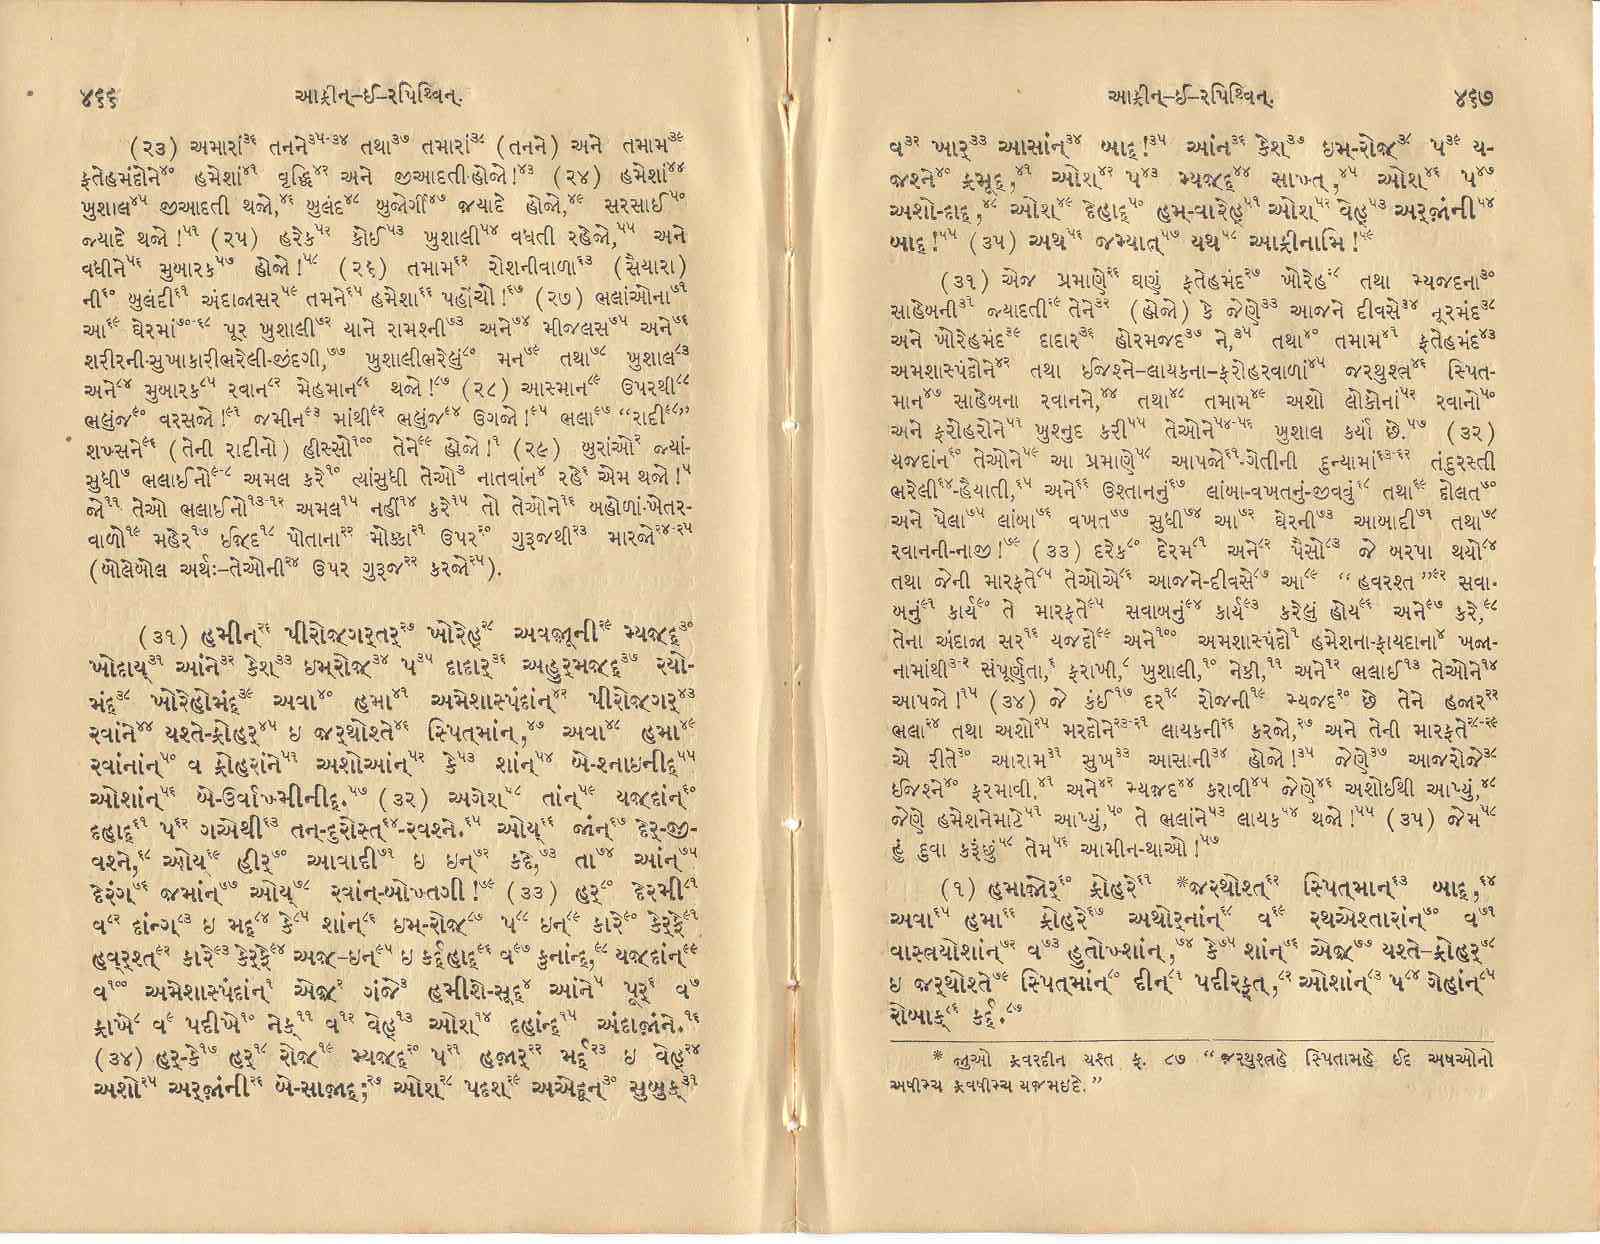 ૪૬૬ આફ્રીન્-ઈ-રપિથ્વિન્.
(૨૩) અમારાં૩૬ તનને૩૫-૩૪ તથા૩૭ તમારાં૩૮ (તનને) અને તમામ૩૯
ફતેહમંદોને૪૦ હમેશાં૪૧ વૃદ્ધિ૪૨ અને જીઆદતી હોજો!૪૩ (૨૪) હમેશાં૪૪
ખુશાલ૪૫ જીઆદતી થજો,૪૬ બુલંદ૪૮ બુજોર્ગી૪૭ જ્યાદે હોજો,૪૯ સરસાઈ૫૦
જ્યાદે થજો!૫૧ (૨૫) હરેક૫૨ કોઈ૫૩ ખુશાલી૫૪ વધતી રહેજો,૫૫ અને
વધીને૫૬ મુબારક૫૭ હોજો!૫૮ (૨૬) તમામ૬૨ રોશનીવાળા૬૩ (સૈયારા)
ની૬૦ બુલંદી૬૧ અંદાજાસર૫૯ તમને૬૫ હમેશા૬૬ પહોંચો!૬૭ (૨૭) ભલાંઓના૭૧
આ૬૯ ઘેરમાં૭૦-૬૮ પૂર ખુશાલી૭૨ યાને રામશ્ની૭૩ અને૭૪ મીજલસ૭૫ અને૭૬
શરીરની-સુખાકારીભરેલી-જીંદગી,૭૭ ખુશાલીભરેલું૮૦ મન૭૯ તથા૭૮ ખુશાલ૮૩
અને૮૪ મુબારક૮૫ રવાન૮૨ મેહમાન૮૬ થજો!૮૭ (૨૮) આસ્માન૮૯ ઉપરથી૮૮
ભલુંજ૯૦ વરસજો!૯૧ જમીન૯૩ માંથી૯૨ ભલુંજ૯૪ ઉગજો!૯૫ ભલા૯૭ “રાદી૯૮”
શખ્સને૯૬ (તેની રાદીનો) હીસ્સો૧૦૦ તેને૯૯ હોજો!૧ (૨૯) બુરાંઓ૨ જ્યાં-
સુધી૭ ભલાઈનો૯-૮ અમલ કરે૧૦ ત્યાંસુધી તેઓ૩ નાતવાંન૪ રહે૬ એમ થજો!૫
જો૧૧ તેઓ ભલાઈનો૧૩-૧૨ અમલ૧૫ નહીં૧૪ કરે૧૫ તો તેઓને૧૬ બહોળાં-ખેતર-
વાળો૧૯ મહેર૧૭ ઈજદ૧૮ પોતાના૨૨ મોક્કા૨૧ ઉપર૨૦ ગુરૂજથી૨૩ મારજો૨૪-૨૫
(બોલેબોલ અર્થ:–તેઓની૨૪ ઉપર ગુરૂજ૨૨ કરજો૨૫).
(૩૧) હમીન્૨૬ પીરોજગર્તર્૨૭ ખોરેહ્૨૮ અવજૂની૨૯ મ્યજદ્દ૩૦
ખોદાય્૩૧ આંને૩૨ કેશ૩૩ ઇમ્રોજ઼૩૪ પ૩૫ દાદાર્૩૬ અહુર્મજ઼્દ્૩૭ રયો-
મંદ્દ૩૮ ખોરેહોમંદ્દ૩૯ અવા૪૦ હમા૪૧ અમેશાસ્પંદાંન્૪૨ પીરોજગર્૪૩
રવાંને૪૪ યશ્તે-ફ્રોહર્૪૫ ઇ જર્થોશ્તે૪૬ સ્પિતમાંન્,૪૭ અવા૪૮ હમા૪૯
રવાંનાંન્૫૦ વ ફ્રોહરાંને૫૧ અશોઆંન્૫૨ કે૫૩ શાંન્૫૪ બે-શ્નાઇનીદ્દ૫૫
ઓશાંન્૫૬ બે-ઉર્વાખ્મીનીદ્દ.૫૭ (૩૨) અગેશ૫૮ તાંન્૫૯ યજ઼દાંન્૬૦
દહાદ્દ૬૧ પ૬૨ ગએથી૬૩ તન્-દુરોસ્ત્૬૪-રવશ્ને.૬૫ ઓય્૬૬ જાંન્૬૭ દેર્-જી-
વશ્ને,૬૮ ઓય્૬૯ હીર્૭૦ આવાદી૭૧ ઇ ઇન્૭૨ કદે,૭૩ તા૭૪ આંન્૭૫
દેરંગ્૭૬ જમાંન્૭૭ ઓય્૭૮ રવાંન્-બોખ્તગી!૭૯ (૩૩) હર્૮૦ દેરમી૮૧
વ૮૨ દાંન્ગ્૮૩ ઇ મદ્દ૮૪ કે૮૫ શાંન્૮૬ ઇમ્-રોજ઼૮૭ પ૮૮ ઇન્૮૯ કારે૯૦ કેર્ફે૯૧
હવર્શ્ત્૯૨ કારે૯૩ કેર્ફે૯૪ અજ઼-ઇન્૯૫ ઇ કર્દ્દહાદ્દ૯૬ વ૯૭ કુનાંન્દ્દ,૯૮ યજ઼દાંન્૯૯
વ૧૦૦ અમેશાસ્પંદાંન્૧ એજ઼૨ ગંજે૩ હમીશે-સૂદ્દ૪ આંને૫ પૂર્૬ વ૭
ફ્રાખે૮ વ૯ પદીખે૧૦ નેક્૧૧ વ૧૨ વેહ્૧૩ ઓશ૧૪ દહાંન્દ્૧૫ અંદાજાંને.૧૬
(૩૪) હર્-કે૧૭ હર્૧૮ રોજ઼૧૯ મ્યજ઼દ્દ૨૦ પ૨૧ હજાર્૨૨ મર્દ્દ૨૩ ઇ વેહ્૨૪
અશો૨૫ અર્જાંની૨૬ બે-સાજાદ્દ;૨૭ ઓશ૨૮ પદશ૨૯ અએદૂન્૩૦ સુબુક્૩૧
આફ્રીન્-ઈ-રપિથ્વિન્. ૪૬૭
વ૩૨ ખાર્૩૩ આસાંન્૩૪ બાદ્દ!૩૫ આંન૩૬ કેશ૩૭ ઇમ્-રોજ઼૩૮ પ૩૯ ય-
જશ્ને૪૦ ફ્રમૂદ્દ,૪૧ ઓશ૪૨ પ૪૩ મ્યજ઼દ્દ૪૪ સાખ્ત્,૪૫ ઓશ૪૬ પ૪૭
અશો-દાદ્દ,૪૮ ઓશ૪૯ દેહાદ્દ૫૦ હમ્-વારેહ્૫૧ ઓશ૫૨ વેહ્૫૩ અર્જાંની૫૪
બાદ્દ!૫૫ (૩૫) અથ૫૬ જમ્યાત્૫૭ યથ૫૮ આફ્રીનામિ!૫૯
(૩૧) એજ પ્રમાણે૨૬ ઘણું ફતેહમંદ૨૭ ખોરેહ૨૮ તથા મ્યજદના૩૦
સાહેબની૩૧ જ્યાદતી૨૯ તેને૩૨ (હોજો) કે જેણે૩૩ આજને દીવસે૩૪ નૂરમંદ૩૮
અને ખોરેહમંદ૩૯ દાદાર૩૬ હોરમજદ૩૭ ને,૩૫ તથા૪૦ તમામ૪૧ ફતેહમંદ૪૩
અમશાસ્પંદોને૪૨ તથા ઈજશ્ને–લાયકના–ફરોહરવાળાં૪૫ જરથુશ્ત્ર૪૬ સ્પિત-
માન૪૭ સાહેબના રવાનને,૪૪ તથા૪૮ તમામ૪૯ અશો લોકોનાં૫૨ રવાનો૫૦
અને ફરોહરોને૫૧ ખુશ્નુદ કરી૫૫ તેઓને૫૪-૫૬ ખુશાલ કર્યા છે.૫૭ (૩૨)
યજદાંન૬૦ તેઓને૫૯ આ પ્રમાણે૫૮ આપજો૬૧-ગેતીની દુન્યામાં૬૩-૬૨ તંદુરસ્તી
ભરેલી૬૪-હૈયાતી,૬૫ અને૬૬ ઉશ્તાનનું૬૭ લાંબા-વખતનું-જીવવું૬૮ તથા૬૯ દોલત૭૦
અને પેલા૭૫ લાંબા૭૬ વખત૭૭ સુધી૭૪ આ૭૨ ઘેરની૭૩ આબાદી૭૧ તથા૭૮
રવાનની-નાજી!૭૯ (૩૩) દરેક૮૦ દેરમ૮૧ અને૮૨ પૈસો૮૩ જે બરપા થયો૮૪
તથા જેની મારફતે૮૫ તેઓએ૮૬ આજને-દીવસે૮૭ આ૮૯ “હવરશ્ત”૯૨ સવા-
બનું૯૧ કાર્ય૯૦ તે મારફતે૯૫ સવાબનું૯૪ કાર્ય૯૩ કરેલું હોય૯૬ અને૯૭ કરે,૯૮
તેના અંદાજા સર૧૬ યજદો૯૯ અને૧૦૦ અમશાસ્પંદો૧ હમેશના-ફાયદાના૪ ખજા-
નામાંથી૩-૨ સંપૂર્ણતા,૬ ફરાખી,૮ ખુશાલી,૧૦ નેકી,૧૧ અને૧૨ ભલાઈ૧૩ તેઓને૧૪
આપજો!૧૫ (૩૪) જે કંઈ૧૭ દર૧૮ રોજની૧૯ મ્યજદ૨૦ છે તેને હજાર૨૨
ભલા૨૪ તથા અશો૨૫ મરદોને૨૩-૨૧ લાયકની૨૬ કરજો,૨૭ અને તેની મારફતે૨૮-૨૯
એ રીતે૩૦ આરામ૩૧ સુખ૩૩ આસાની૩૪ હોજો!૩૫ જેણે૩૭ આજરોજે૩૮
ઈજશ્ને૪૦ ફરમાવી,૪૧ અને૪૨ મ્યજદ૪૪ કરાવી૪૫ જેણે૪૬ અશોઈથી આપ્યું,૪૮
જેણે હમેશનેમાટે૫૧ આપ્યું,૫૦ તે ભલાંને૫૩ લાયક૫૪ થજો!૫૫ (૩૫) જેમ૫૮
હું દુવા કરૂંછું૫૯ તેમ૫૬ આમીન-થાઓ!૫૭
(૧) હમાજોર્૬૦ ફ્રોહરે૬૧ *જરથોશ્ત્૬૨ સ્પિતમાન્૬૩ બાદ્દ,૬૪
અવા૬૫ હમા૬૬ ફ્રોહરે૬૭ અથોર્નાંન્૬૮ વ૬૯ રથએશ્તારાંન્૭૦ વ૭૧
વાસ્ત્રયોશાંન્૭૨ વ૭૩ હુતોખ્શાંન્,૭૪ કે૭૫ શાંન્૭૬ એજ઼૭૭ યશ્તે–ફ્રોહર્૭૮
ઇ જર્થોશ્તે૭૯ સ્પિતમાંન્૮૦ દીન્૮૧ પદીરફ્ત્,૮૨ ઓશાંન્૮૩ પ૮૪ ગેહાંન્૮૫
રોબાક્૮૬ કર્દ્દ.૮૭
* જીઓ ફ્રવરદીન યસ્ત ફ. ૮૭ “જરથુશ્ત્રહે સ્પિતામહે ઈદ અષઓનો
અષીમ્ચ ફ્રવષીમ્ચ યજમઇદે.”